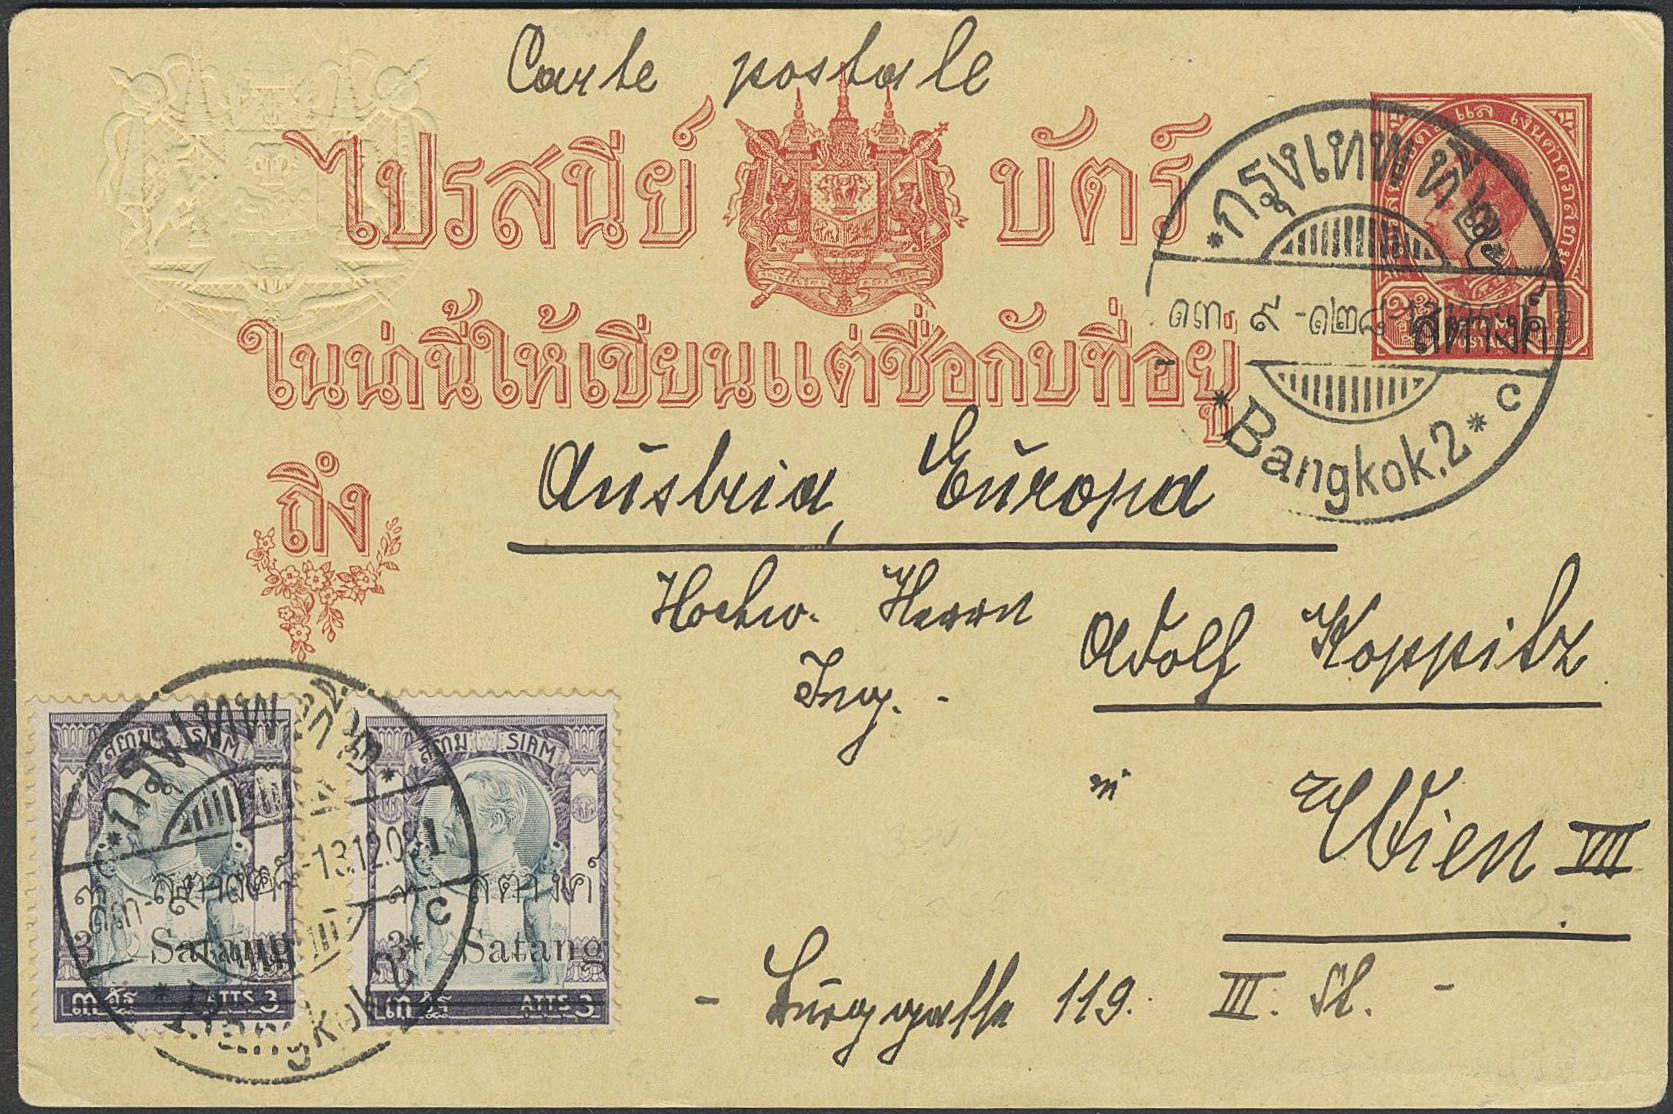 Carte postale
ไปรสนีย์ บัตร์
ในน่านี้ให้เขียนแต่ชื่อกับที่อยู่
ถึง
กรุงเทพ ที่ ๒
๑๓ · ๙ - ๑๒๘
Bangkok.2
C
สตางค์
Austria, Europa
Hochw. Herrn Adolf Koppitz
Ing. -
in Wien VII
- Burggasse 119. III. St. -
กรุงเทพ ที่ ๒
-13.12.09
C
Bangkok.2
สยาม SIAM
๓ สตางค์
3 Satang
ATTS.3
สยาม SIAM
๓ สตางค์
3 Satang
๓ อัฐ ATTS.3